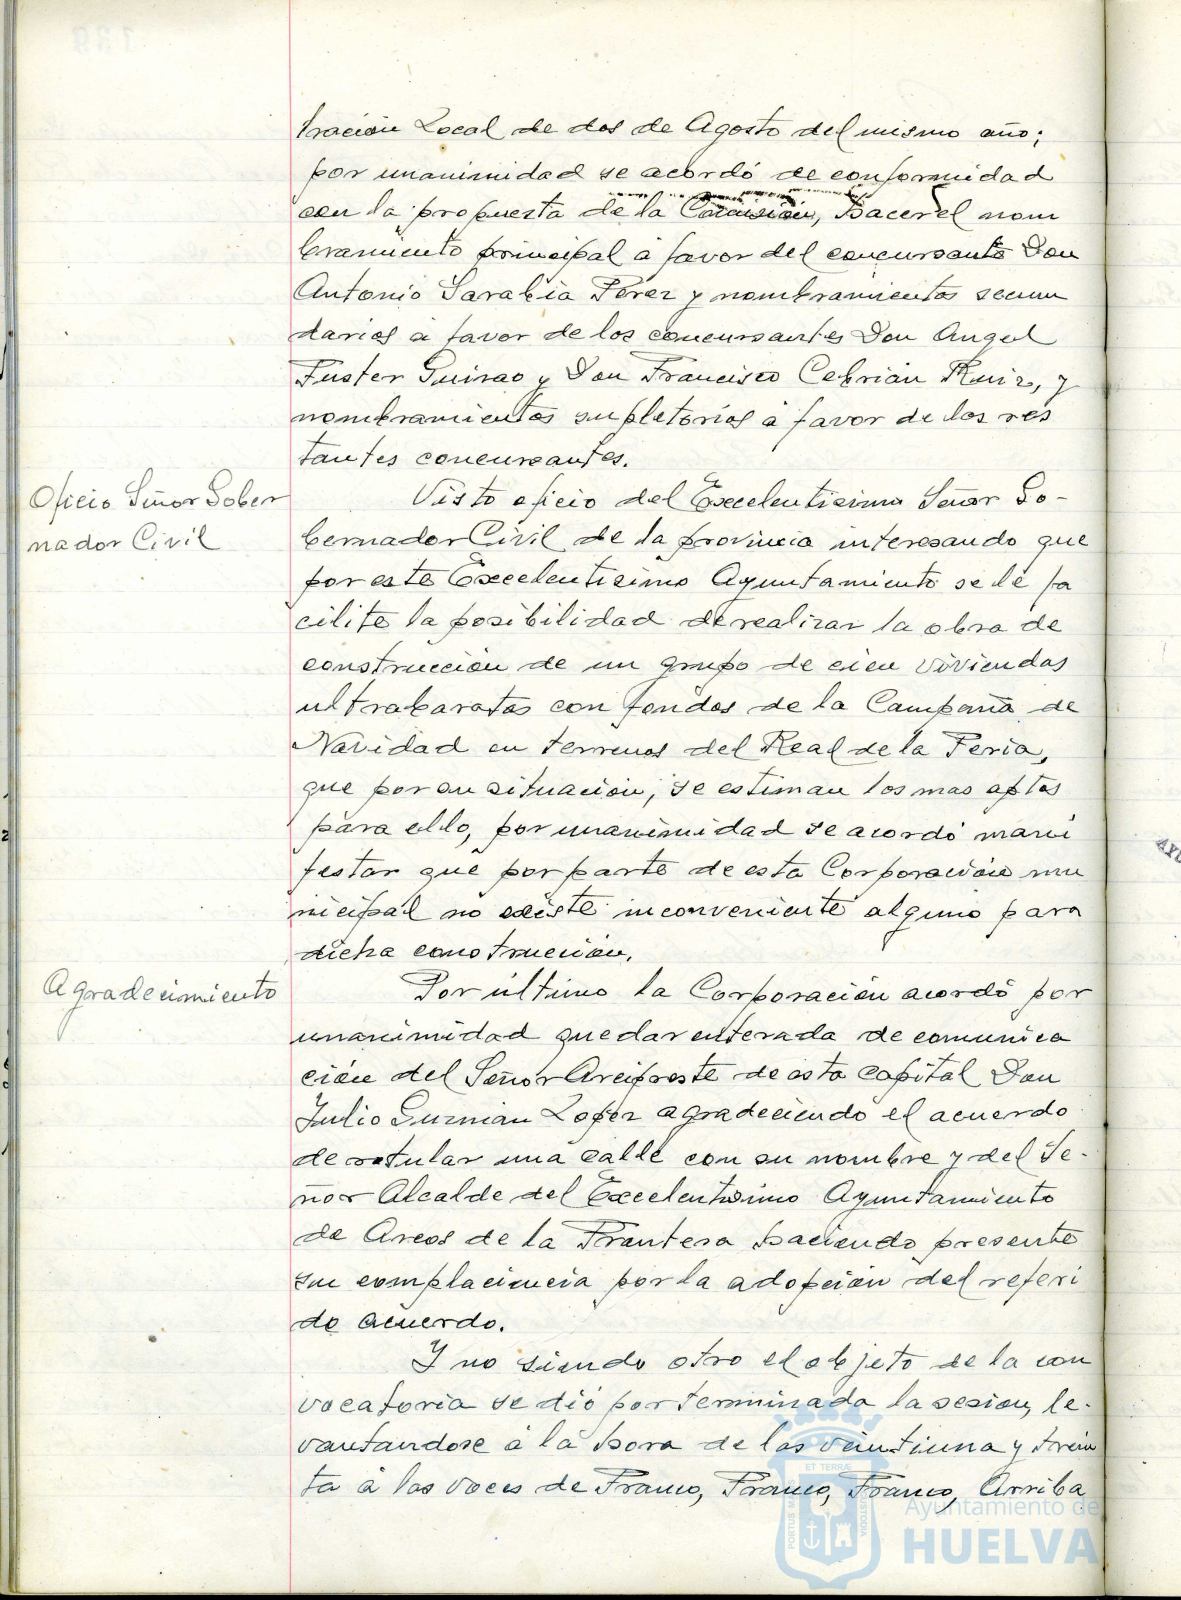 tración Local de dos de Agosto del mismo año;
por unanimidad se acordó de conformidad
con la propuesta de la Comisión, hacer el nom
bramiento principal á favor del concursante Don
Antonio Sarabia Pérez y nombramientos secun
darios á favor de los concursantes Don Angel
Fuster Guirao y Don Francisco Cebrián Ruiz, y
nombramientos supletorios á favor de los res
tantes concursantes.
Oficio Señor Gober
nador Civil
Visto oficio del Excelentisimo Señor Go-
bernador Civil de la provincia interesando que
por este Excelentisimo Ayuntamiento se le fa
cilite la posibilidad de realizar la obra de
construcción de un grupo de cien viviendas
ultrabaratas con fondos de la Campaña de
Navidad en terrenos del Real de la Feria,
que por su situación, se estiman los mas aptos
para ello, por unanimidad se acordó mani
festar que por parte de esta Corporación mu
nicipal no existe inconveniente alguno para
dicha construción.
Agradecimiento
Por último la Corporación acordó por
unanimidad quedar enterada de comunica
ción del Señor Arcipreste de esta capital Don
Julio Guzmán Lopez agradeciendo el acuerdo
de rotular una calle con su nombre y del Se-
ñor Alcalde del Excelentisimo Ayuntamiento
de Arcos de la Frontera haciendo presente
su complaciencia por la adopción del referi
do acuerdo.
Y no siendo otro el objeto de la con
vocatoria se dió por terminada la sesion, le-
vantandose á la hora de las veintiuna y trein
ta á las voces de Franco, Franco, Franco, Arriba
PORTUS MARIS ET TERRÆ CUSTODIA
Ayuntamiento de
HUELVA